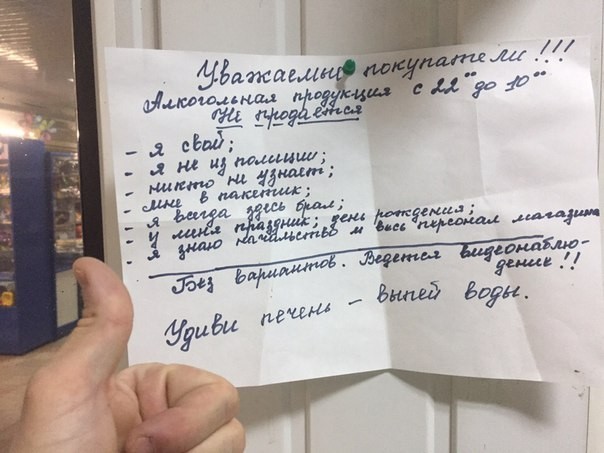 Уважаемые покупатели!!!
Алкогольная продукция с 22⁰⁰ до 10⁰⁰
Не продается
- я свой;
- я не из полиции;
- никто не узнает;
- мне в пакетик;
- я всегда здесь брал;
- у меня праздник; день рождения;
- я знаю начальство и весь персонал магазина
Без вариантов. Ведется видеонаблю-
дение!!
Удиви печень - выпей воды.